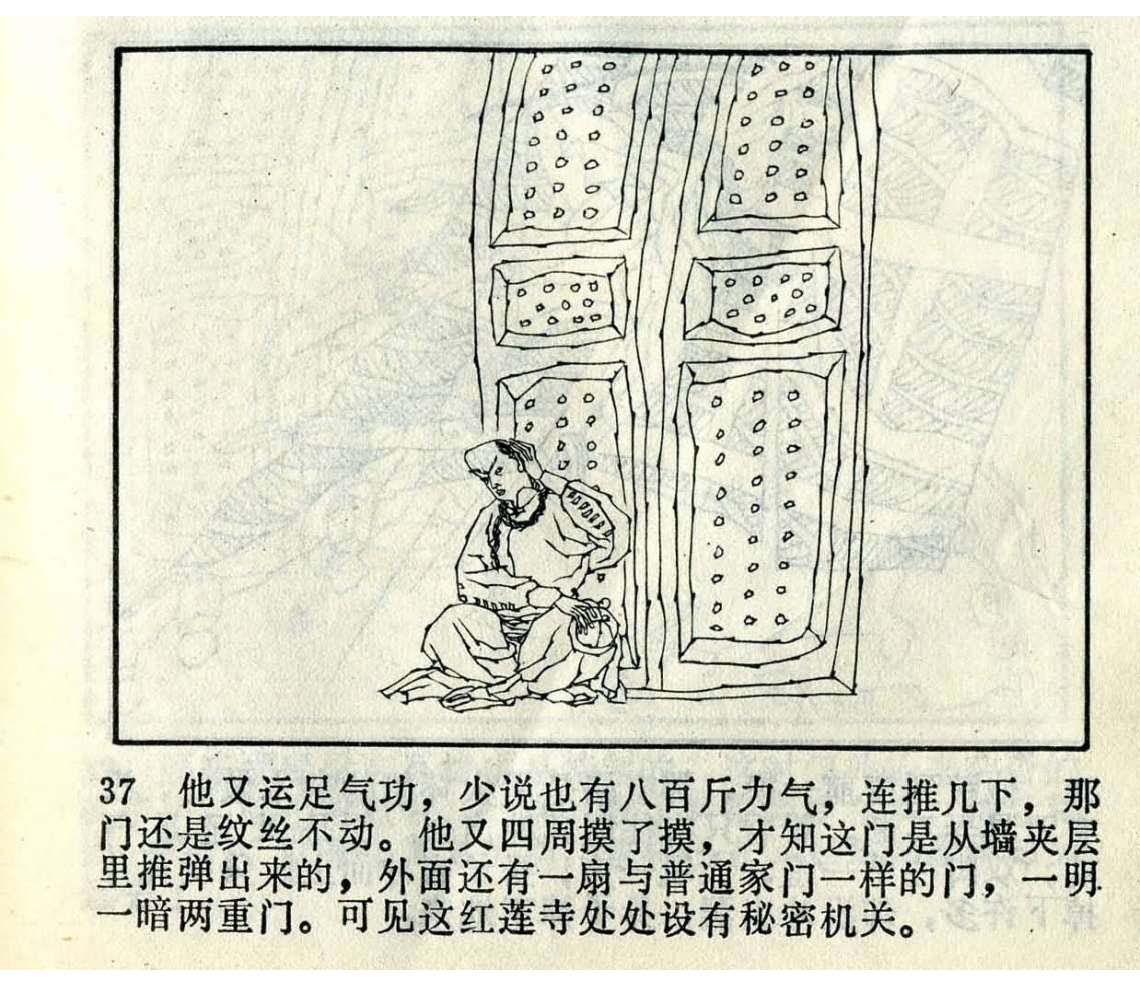 37 他又运足气功，少说也有八百斤力气，连推几下，那
门还是纹丝不动。他又四周摸了摸，才知这门是从墙夹层
里推弹出来的，外面还有一扇与普通家门一样的门，一明
一暗两重门。可见这红莲寺处处设有秘密机关。